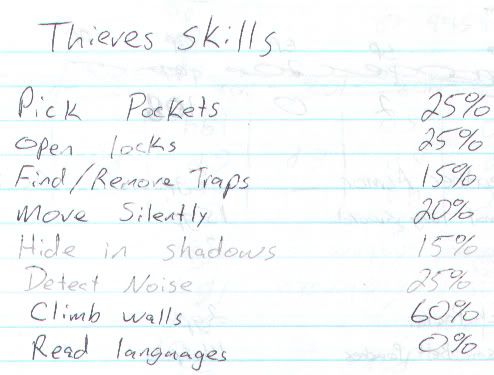 Thieves skills
Pick Pockets 25%
Open locks 25%
Find/Remove Traps 15%
Move Silently 20%
Hide in shadows 15%
Detect Noise 25%
Climb walls 60%
Read languages 0%